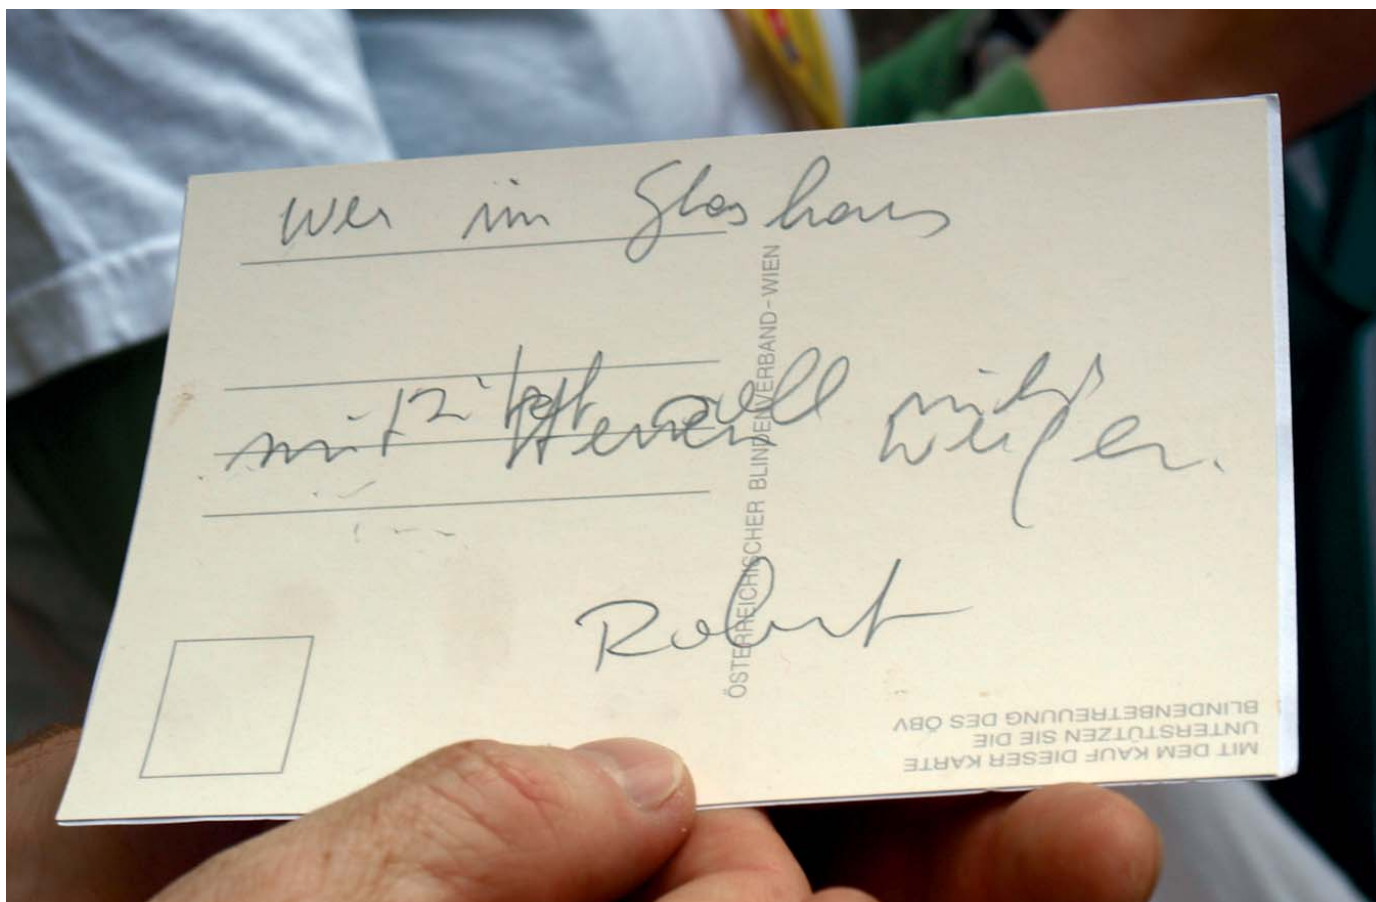 Wer im Glashaus
sitzt soll nicht
mit Steinen werfen.
Robert
ÖSTERREICHISCHER BLINDENVERBAND-WIEN
MIT DEM KAUF DIESER KARTE
UNTERSTÜTZEN SIE DIE
BLINDENBETREUUNG DES ÖBV